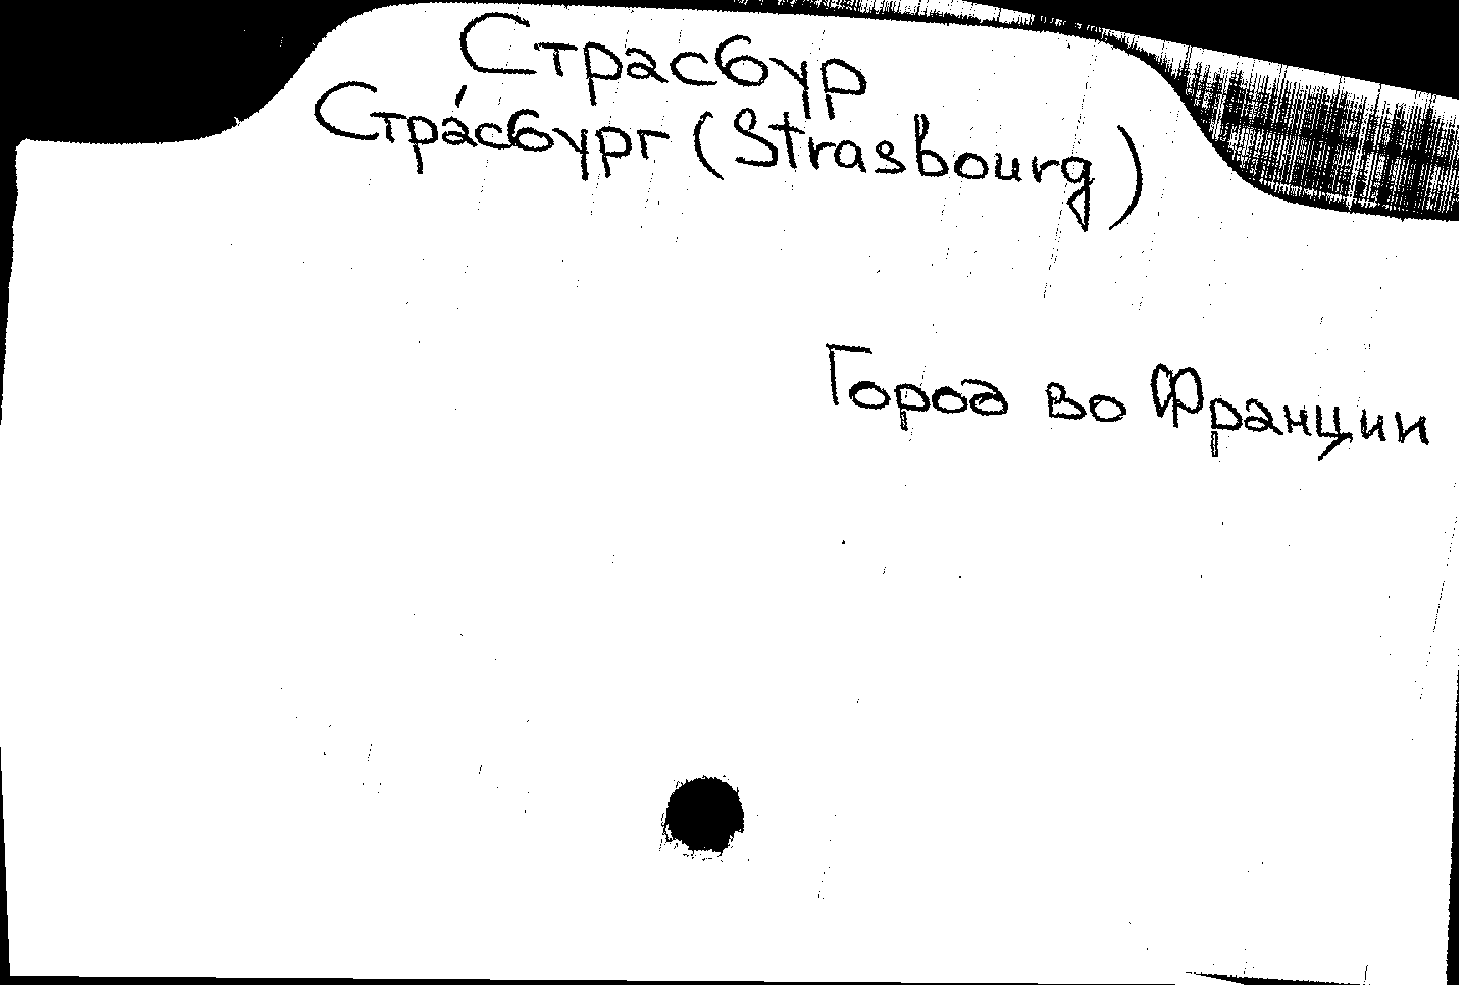 Страсбур
Стра́сбург (Strasbourg)
Город во Франции